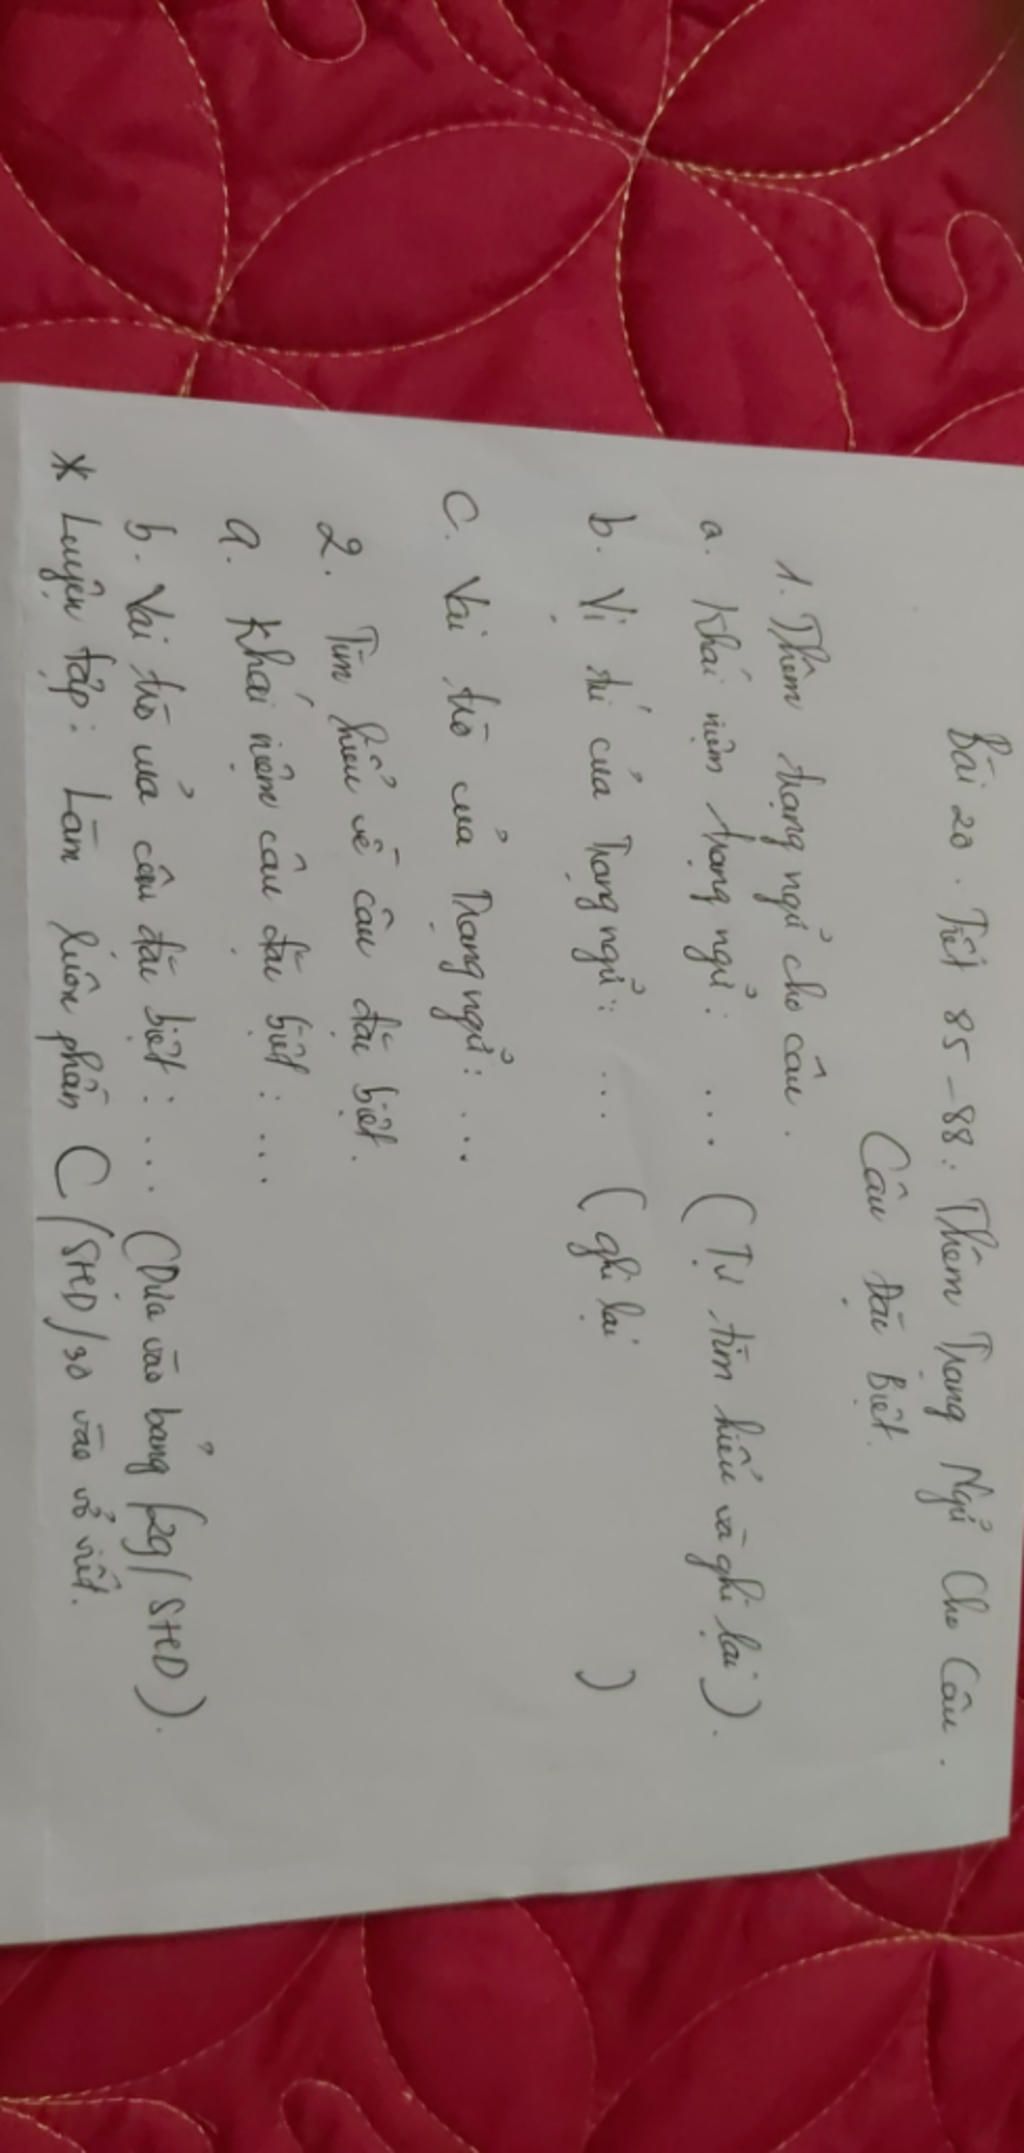 Bài 20. Tiết 85-88: Thêm Trạng Ngữ Cho Câu.
Câu Đặc Biệt.
1. Thêm trạng ngữ cho câu.
a. Khái niệm trạng ngữ: ... (Tự tìm hiểu và ghi lại).
b. Vị trí của Trạng ngữ: ... (ghi lại )
c. Vai trò của Trạng ngữ: ...
2. Tìm hiểu về câu đặc biệt.
a. Khái niệm câu đặc biệt: ...
b. Vai trò của câu đặc biệt: ... (Dựa vào bảng /29/SHD).
* Luyện tập: Làm luôn phần C /SHD/30 vào vở viết.